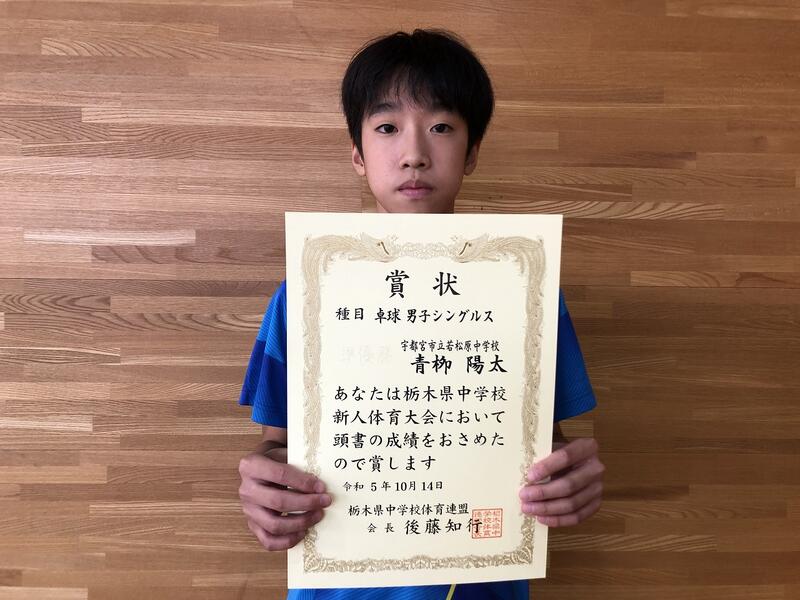 賞状
種目 卓球 男子シングルス
準優勝
宇都宮市立若松原中学校
青栁 陽太
あなたは栃木県中学校
新人体育大会において
頭書の成績をおさめた
ので賞します
令和 5 年 10 月 14 日
栃木県中学校体育連盟
会長 後藤知行